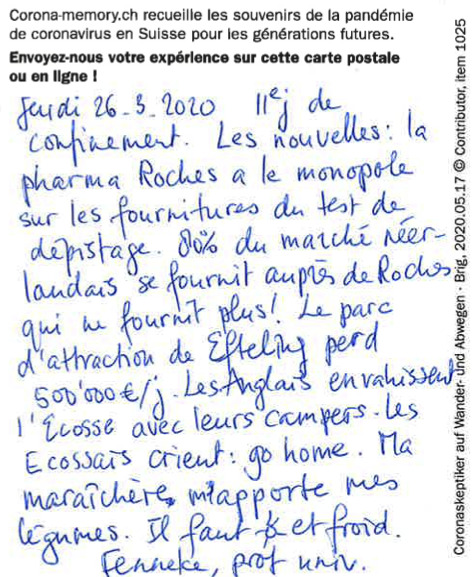 Corona-memory.ch recueille les souvenirs de la pandémie
de coronavirus en Suisse pour les générations futures.
Envoyez-nous votre expérience sur cette carte postale
ou en ligne !
Jeudi 26-3-2020 11ej de
confinement. Les nouvelles: la
pharma Roches a le monopole
sur les fournitures du test de
dépistage. 80% du marché néer-
landais se fournit auprès de Roches
qui ne fournit plus! Le parc
d'attraction de Efteling perd
500'000€/j. Les Anglais envahissent
l'Écosse avec leurs campers. Les
Ecossais crient: go home. Ma
maraîchère m'apporte mes
légumes. Il faut et froid.
Fenneke, prof univ.
Coronaskeptiker auf Wander- und Abwegen · Brig, 2020.05.17 © Coronarchiv, item 1025